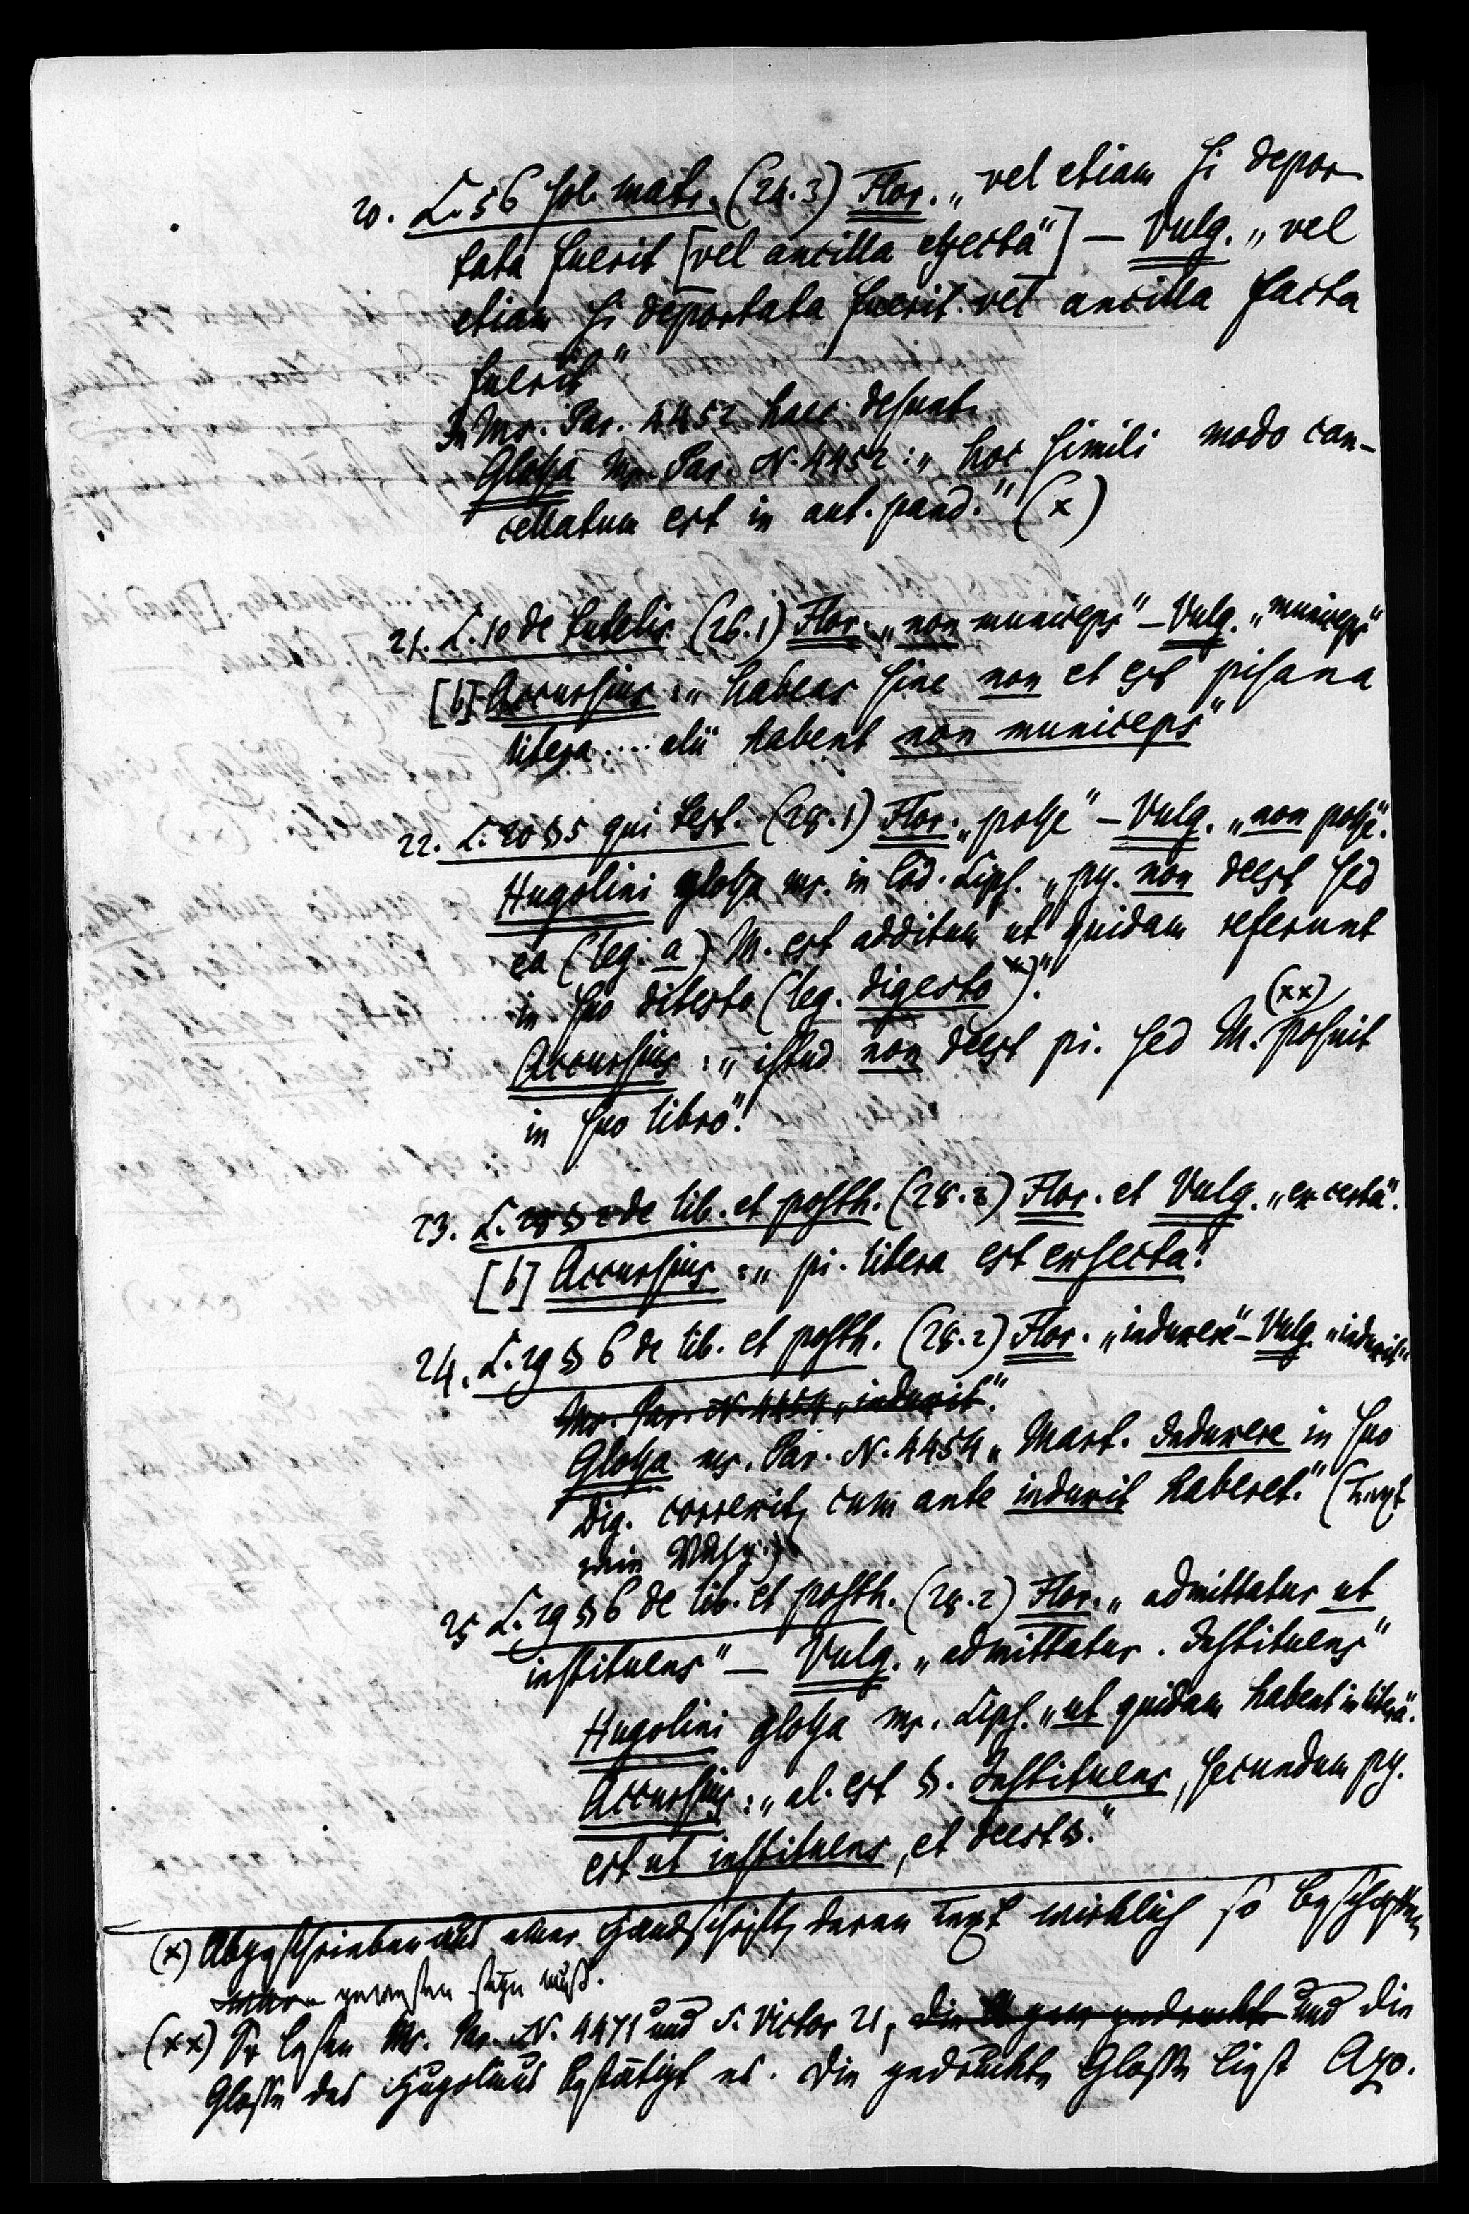 20. L. 56 sol. matr. (24.3) Flor. „vel etiam si depor-
tata fuerit [vel ancilla effecta“] — Vulg. „vel
etiam si deportata fuerit vel ancilla facta
fuerit“
In Ms. Par. 4452 haec desunt.
Glossa Ms. Par. N. 4452: „hoc simili modo can-
cellatum est in aut. pand.“ (x)
21. L. 10 de tutelis (26.1) Flor. „non municeps“ — Vulg. „municeps“
[b] Accursius: „habeas sine non et est pisana
litera .... alii habent non municeps“
22. L. 20 § 5 qui test. (28.1) Flor. „posse“ — Vulg. „non posse“.
Hugolini glossa ms. in Cod. Lips. „py. non deest sed
ea (leg. a) M. est additum ut quidam referunt
in suo diberto (leg. digesto*).“
Accursius: „istud non deest pi. sed M. (xx) posuit
in suo libro“.
23. L. de lib. et posth. (28.2) Flor. et Vulg. „excerta“.
[b] Accursius: „pi. litera est exsecta“.
24. L. 29 § 6 de lib. et posth. (28.2) Flor. „induxere“ — Vulg. „induxit“
Ms. Par. N. 4454 „induxit“.
Glossa ms. Par. N. 4454 „Mart. Induxere in suo
dig. correxit, cum ante induxit haberet.“ (Text
wie Vulg.)
25 L. 29 § 6 de lib. et posth. (28.2) Flor. „admittatur ut
instituens“ — Vulg. „admittatur. Instituens“
Hugolini glossa ms. Lips. „ut quidam habent in litera“.
Accursius: „al. est §. Instituens, secundum py.
est ut instituens, et deest §.“
(x) Abgeschrieben aus einer Handschrift, deren Text wirklich so beschaffen
gewesen seyn muß.
(xx) So lesen Ms. Par. N. 4471 und S. Victor 21, und die
Glosse des Hugolinus bestätigt es. Die gedruckte Glosse liest Azo.